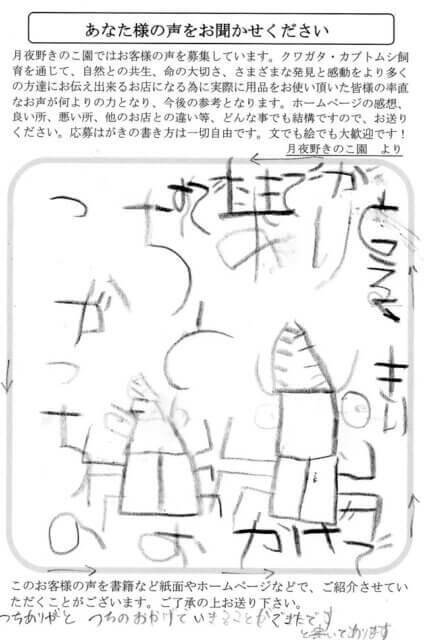 あなた様の声をお聞かせください
月夜野きのこ園ではお客様の声を募集しています。クワガタ・カブトムシ飼
育を通じて、自然との共生、命の大切さ、さまざまな発見と感動をより多く
の方達にお伝え出来るお店になる為に実際に用品をお使い頂いた皆様の率直
なお声が何よりの力となり、今後の参考となります。ホームページの感想、
良い所、悪い所、他のお店との違い等、どんな事でも結構ですので、お送り
ください。応募はがきの書き方は一切自由です。文でも絵でも大歓迎です！
月夜野きのこ園　より
つち
あり
がとう
つちの
おかげで
このお客様の声を書籍など紙面やホームページなどで、ご紹介させてい
ただくことがございます。ご了承の上お送り下さい。
つちありがと つちのおかげでいきることができたです
と書いております